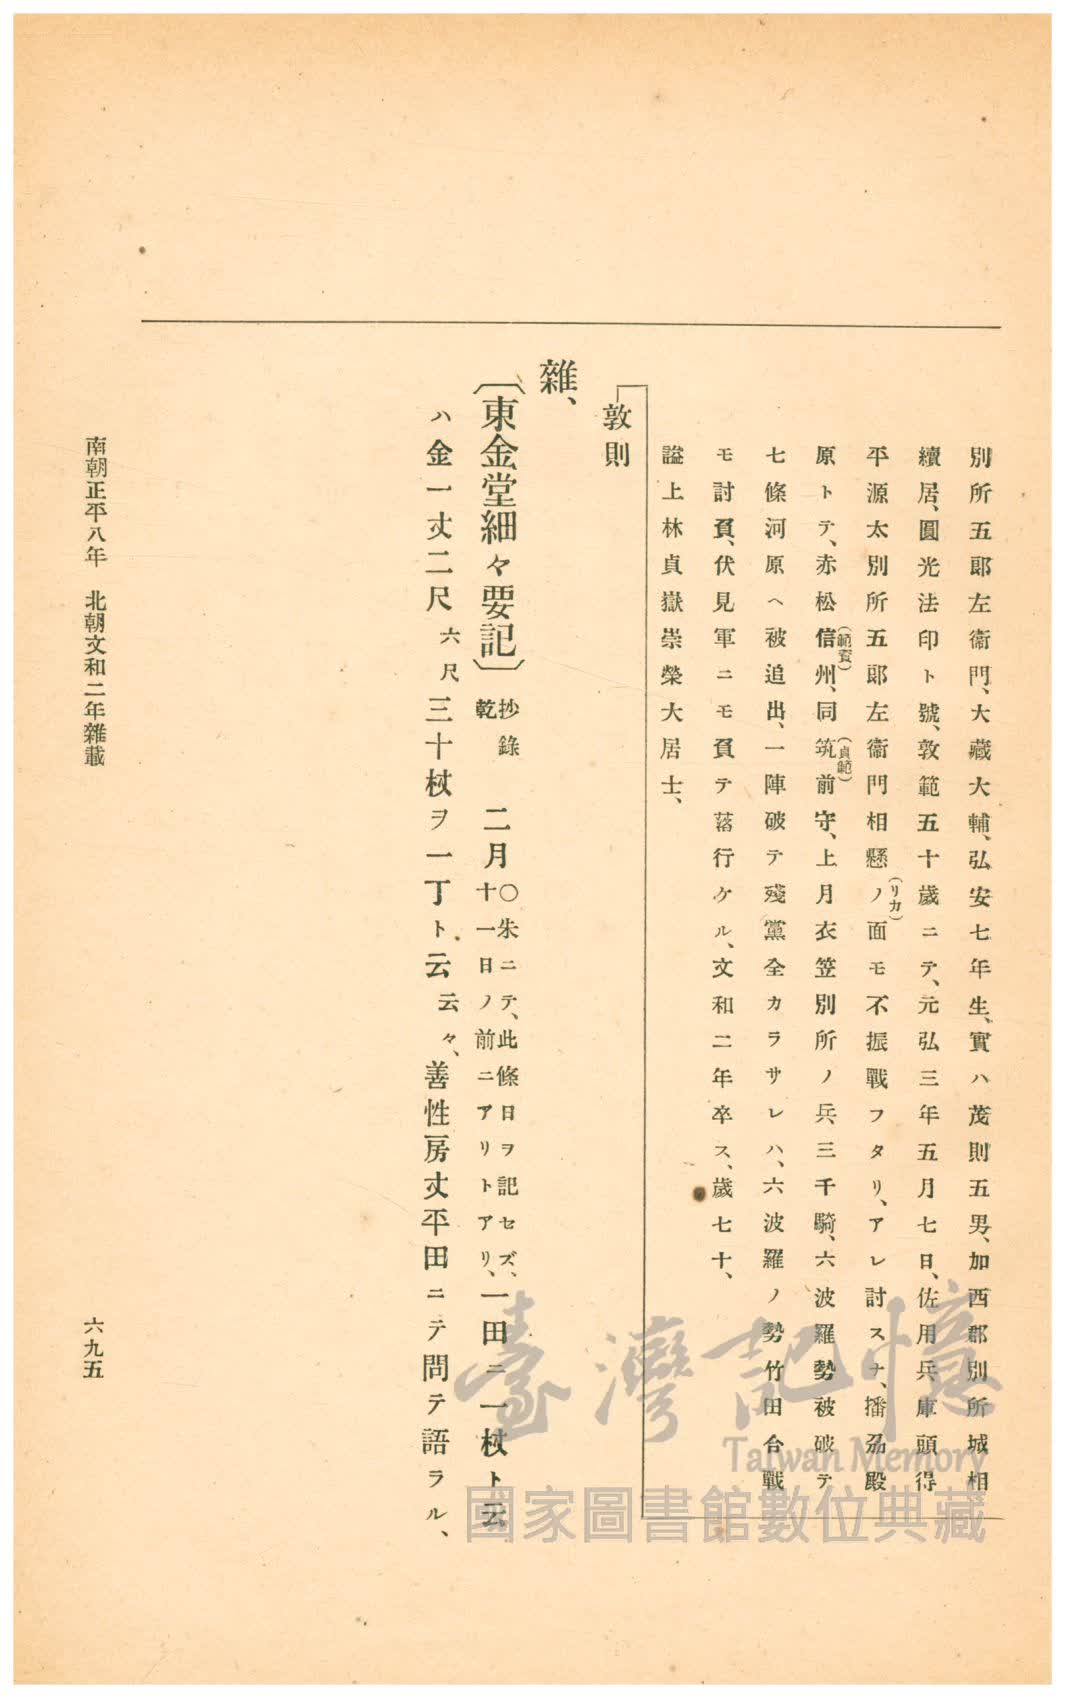 別所五郞左衞門、大藏大輔、弘安七年生、實ハ茂則五男、加西郡別所城相
續居、圓光法印ト號、敦範五十歲ニテ、元弘三年五月七日、佐用兵庫頭得
平源太別所五郞左衞門相懸ノ(リカ)面モ不振戰フタリ、アレ討スナ、播磨殿
原トテ、赤松信州、(範資)同筑前守、(貞範)上月衣笠別所ノ兵、三千騎、六波羅勢被破テ
七條河原ヘ被追出、一陣破テ殘黨全カラサレハ、六波羅ノ勢竹田合戰
モ討負、伏見軍ニモ負テ落行ケル、文和二年卒ス、歲七十、
謚上林貞嶽崇榮大居士、
敦則
雜、
〔東金堂細々要記〕 抄錄乾 二月 〇朱ニテ、此條日ヲ記セズ、十一日ノ前ニアリトアリ、 一田ニ一杖ト云
ハ金一丈二尺 六尺 三十杖ヲ一丁ト云云々、善性房丈平田ニテ問テ語ラル、
南朝正平八年 北朝文和二年雜載
六九五
臺灣記憶
Taiwan Memory
國家圖書館數位典藏